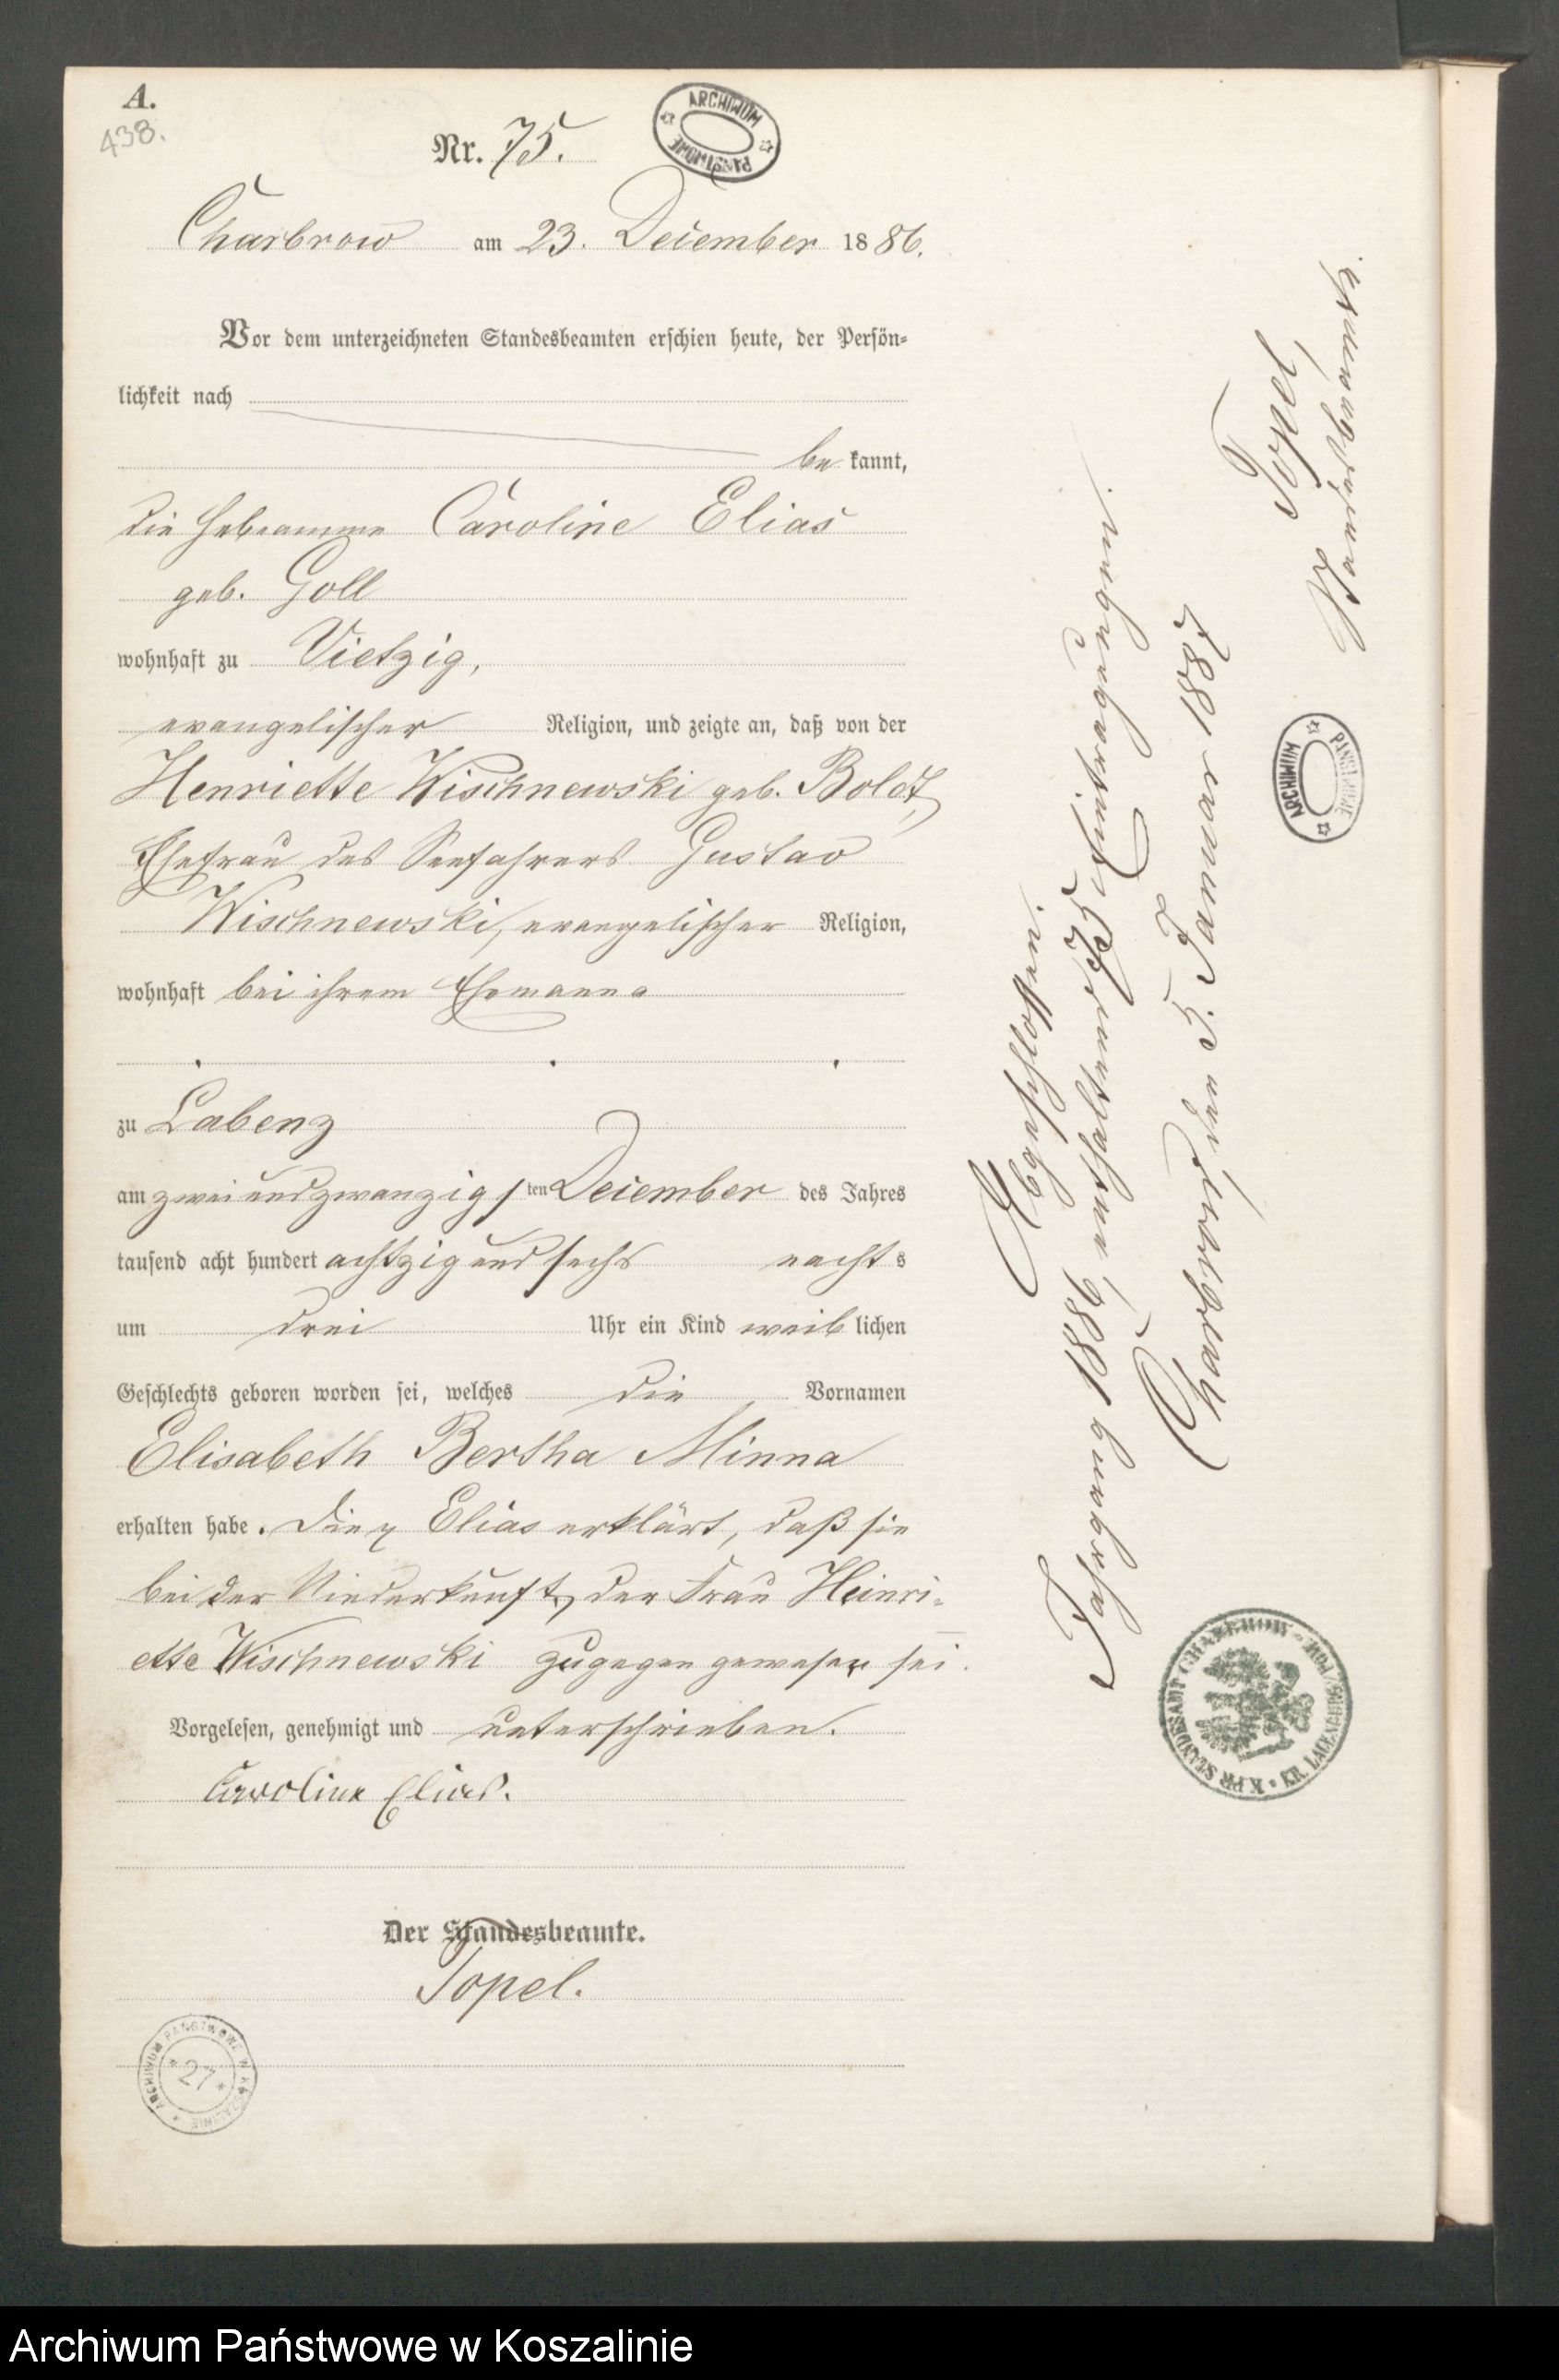 A.
438.
Nr. 75.
ARCHIWUM PAŃSTWOWE
Charbrow am 23. December 1886.
Vor dem unterzeichneten Standesbeamten erschien heute, der Persön-
lichkeit nach
be kannt,
die Hebeamme Caroline Elias
geb. Goll
wohnhaft zu Vietzig,
evangelischer Religion, und zeigte an, daß von der
Henriette Wischnewski geb. Boldt,
Ehefrau des Seefahrers Gustav
Wischnewski, evangelischer Religion,
wohnhaft bei ihrem Ehemanne
zu Labenz
am zweiundzwanzigsten December des Jahres
tausend acht hundert achtzig und sechs nachts
um drei Uhr ein Kind weiblichen
Geschlechts geboren worden sei, welches die Vornamen
Elisabeth Bertha Minna
erhalten habe. Die Elias erklärt, daß sie
bei der Niederkunft der Frau Heinri-
ette Wischnewski zugegen gewesen sei.
Vorgelesen, genehmigt und unterschrieben.
Caroline Elias.
Der Standesbeamte.
Topel.
ARCHIWUM PAŃSTWOWE W KOSZALINIE
*27*
Abgeschlossen.
Jahrgang 1886, enthaltend 75 Eintragungen.
Charbrow, den 5. Januar 1887
Topel,
Standesbeamter.
ARCHIWUM PAŃSTWOWE
K. PR. STANDESAMT CHARBROW · KR. LAUENBURG/POM.
Archiwum Państwowe w Koszalinie